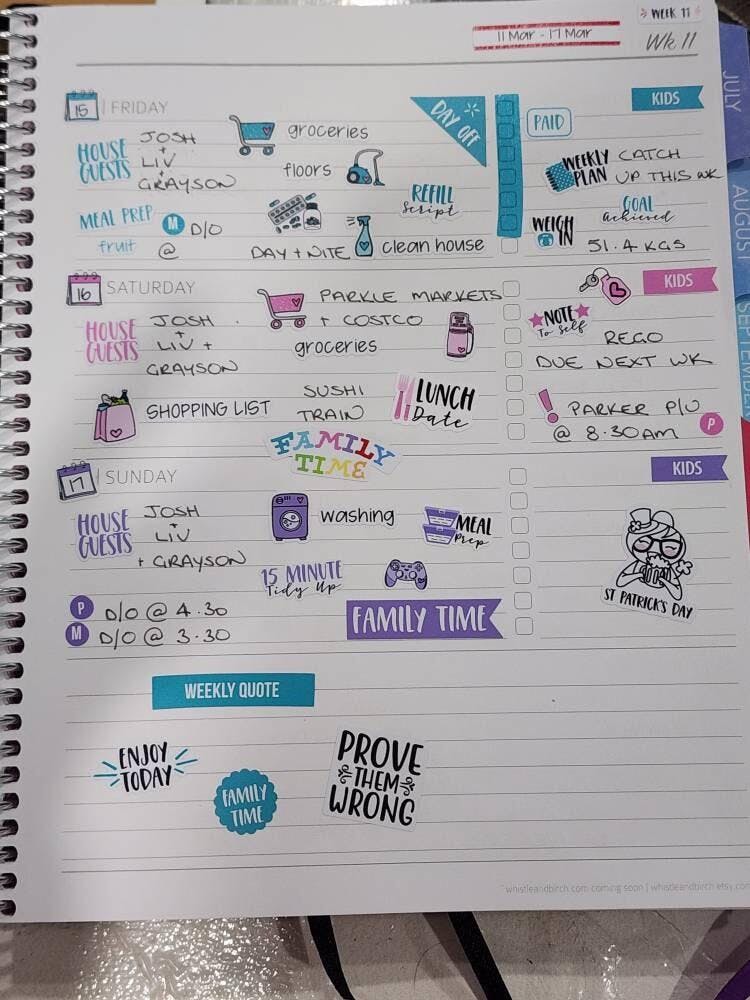 WEEK 11
11 Mar - 17 Mar
Wk 11
JULY
AUGUST
SEPTEMBER
15 FRIDAY
DAY OFF
KIDS
HOUSE GUESTS
JOSH
+
LIV
+
GRAYSON
groceries
floors
REFILL
Script
MEAL PREP
fruit
M D/O
@
DAY + NITE
clean house
PAID
WEEKLY PLAN
CATCH
UP THIS WK
GOAL
Achieved
WEIGH IN
51.4 KGS
16 SATURDAY
KIDS
HOUSE GUESTS
JOSH
+
LIV +
GRAYSON
PARKLE MARKETS
+ COSTCO
groceries
SHOPPING LIST
SUSHI
TRAIN
LUNCH
Date
FAMILY
TIME
NOTE
To Self
REGO
DUE NEXT WK
! PARKER P/U
@ 8.30AM P
17 SUNDAY
KIDS
HOUSE GUESTS
JOSH
+
LIV
+ GRAYSON
washing
MEAL
Prep
15 MINUTE
Tidy Up
P D/O @ 4.30
M D/O @ 3.30
FAMILY TIME
ST PATRICK'S DAY
WEEKLY QUOTE
ENJOY
TODAY
FAMILY
TIME
PROVE
THEM
WRONG
whistleandbirch.com coming soon | whistleandbirch.etsy.com